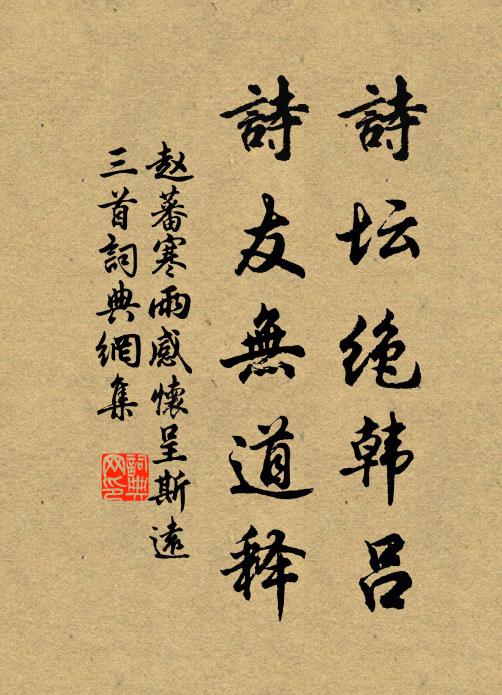 詩坛绝韩吕
詩友無道释
赵蕃寒雨感懷呈斯遠
三首詞典網集
詞典
网印